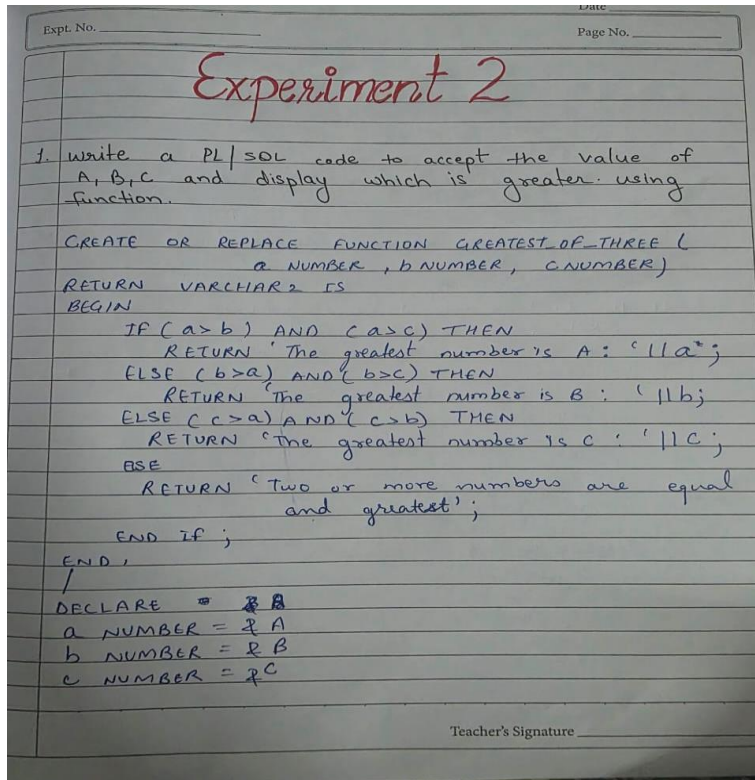 Date
Expt. No.
Page No.
Experiment 2
1. write a PL/SQL code to accept the value of
A, B, C and display which is greater. using
function.
CREATE OR REPLACE FUNCTION GREATEST_OF_THREE (
a NUMBER, b NUMBER, C NUMBER)
RETURN VARCHAR2 IS
BEGIN
IF (a>b) AND (a>c) THEN
RETURN 'The greatest number is A: '||a";
ELSE (b>a) AND (b>c) THEN
RETURN 'The greatest number is B : '||b;
ELSE (c>a) AND (c>b) THEN
RETURN 'The greatest number is C : '||C;
ELSE
RETURN 'Two or more numbers are equal
and greatest';
END If ;
END,
/
DECLARE
a NUMBER = & A
b NUMBER = & B
c NUMBER = & C
Teacher's Signature